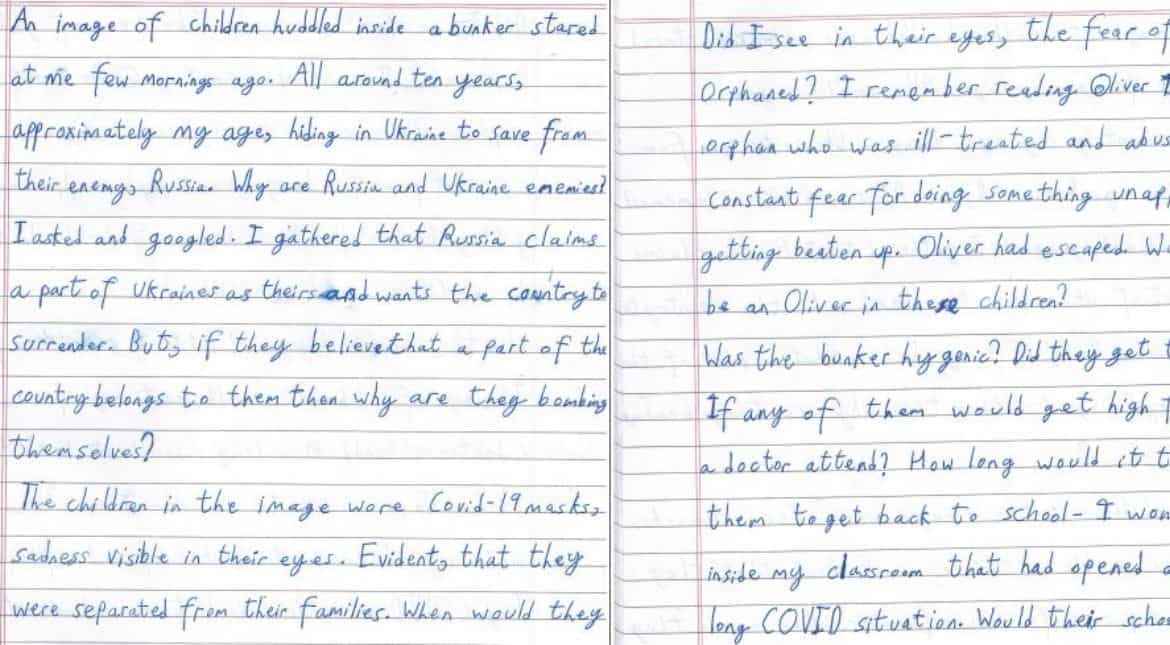 An image of children huddled inside a bunker stared
at me few mornings ago. All around ten years,
approximately my age, hiding in Ukraine to save from
their enemy, Russia. Why are Russia and Ukraine enemies?
I asted and googled. I gathered that Russia claims
a part of Ukraines as theirs and wants the country to
surrender. But, if they believe that a part of the
country belongs to them then why are they bombing
themselves?
The children in the image wore Covid-19 masks,
sadness visible in their eyes. Evident, that they
were separated from their families. When would they
Did I see in their eyes, the fear of
Orphaned? I remember reading Oliver
orphan who was ill-treated and abus
constant fear for doing something unap
getting beaten up. Oliver had escaped. W
be an Oliver in these children?
Was the bunker hygenic? Did they get t
If any of them would get high
a doctor attend? How long would it t
them to get back to school- I won
inside my classroom that had opened a
long COVID situation. Would their scho